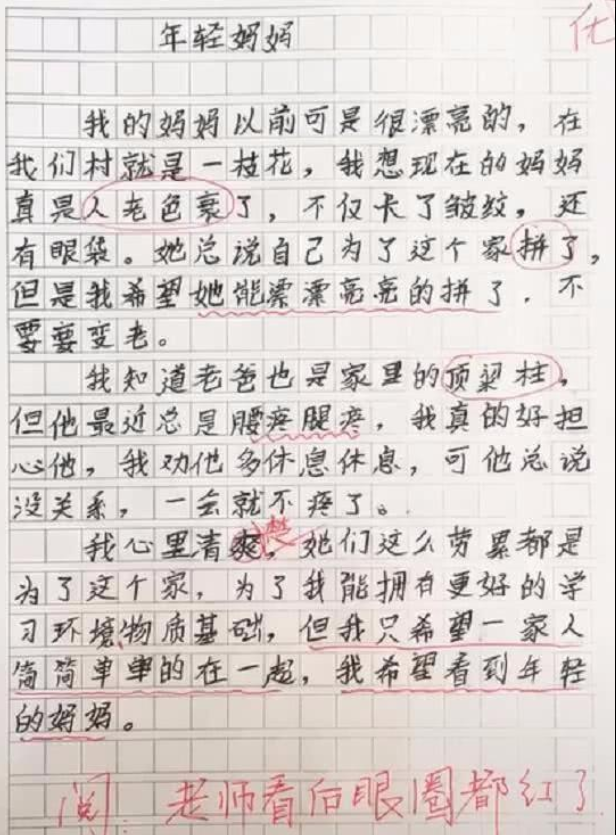 年轻妈妈
优
我的妈妈以前可是很漂亮的，在
我们村就是一枝花，我想现在的妈妈
真是人老色衰了，不仅卡了皱纹，还
有眼袋。她总说自己为了这个家拼了，
但是我希望她能漂漂亮亮的拼了．不
要要变老。
我知道老爸也是家里的顶梁柱，
但他最近总是腰疼腿疼，我真的好担
心他，我劝他多休息休息，可他总说
没关系，一会就不疼了。
我心里清爽楚，她们这么劳累都是
为了这个家，为了我能拥有更好的学
习环境、物质基础，但我只希望一家人
简简单单的在一起，我希望看到年轻
的妈妈。
阅：老师看后眼圈都红了